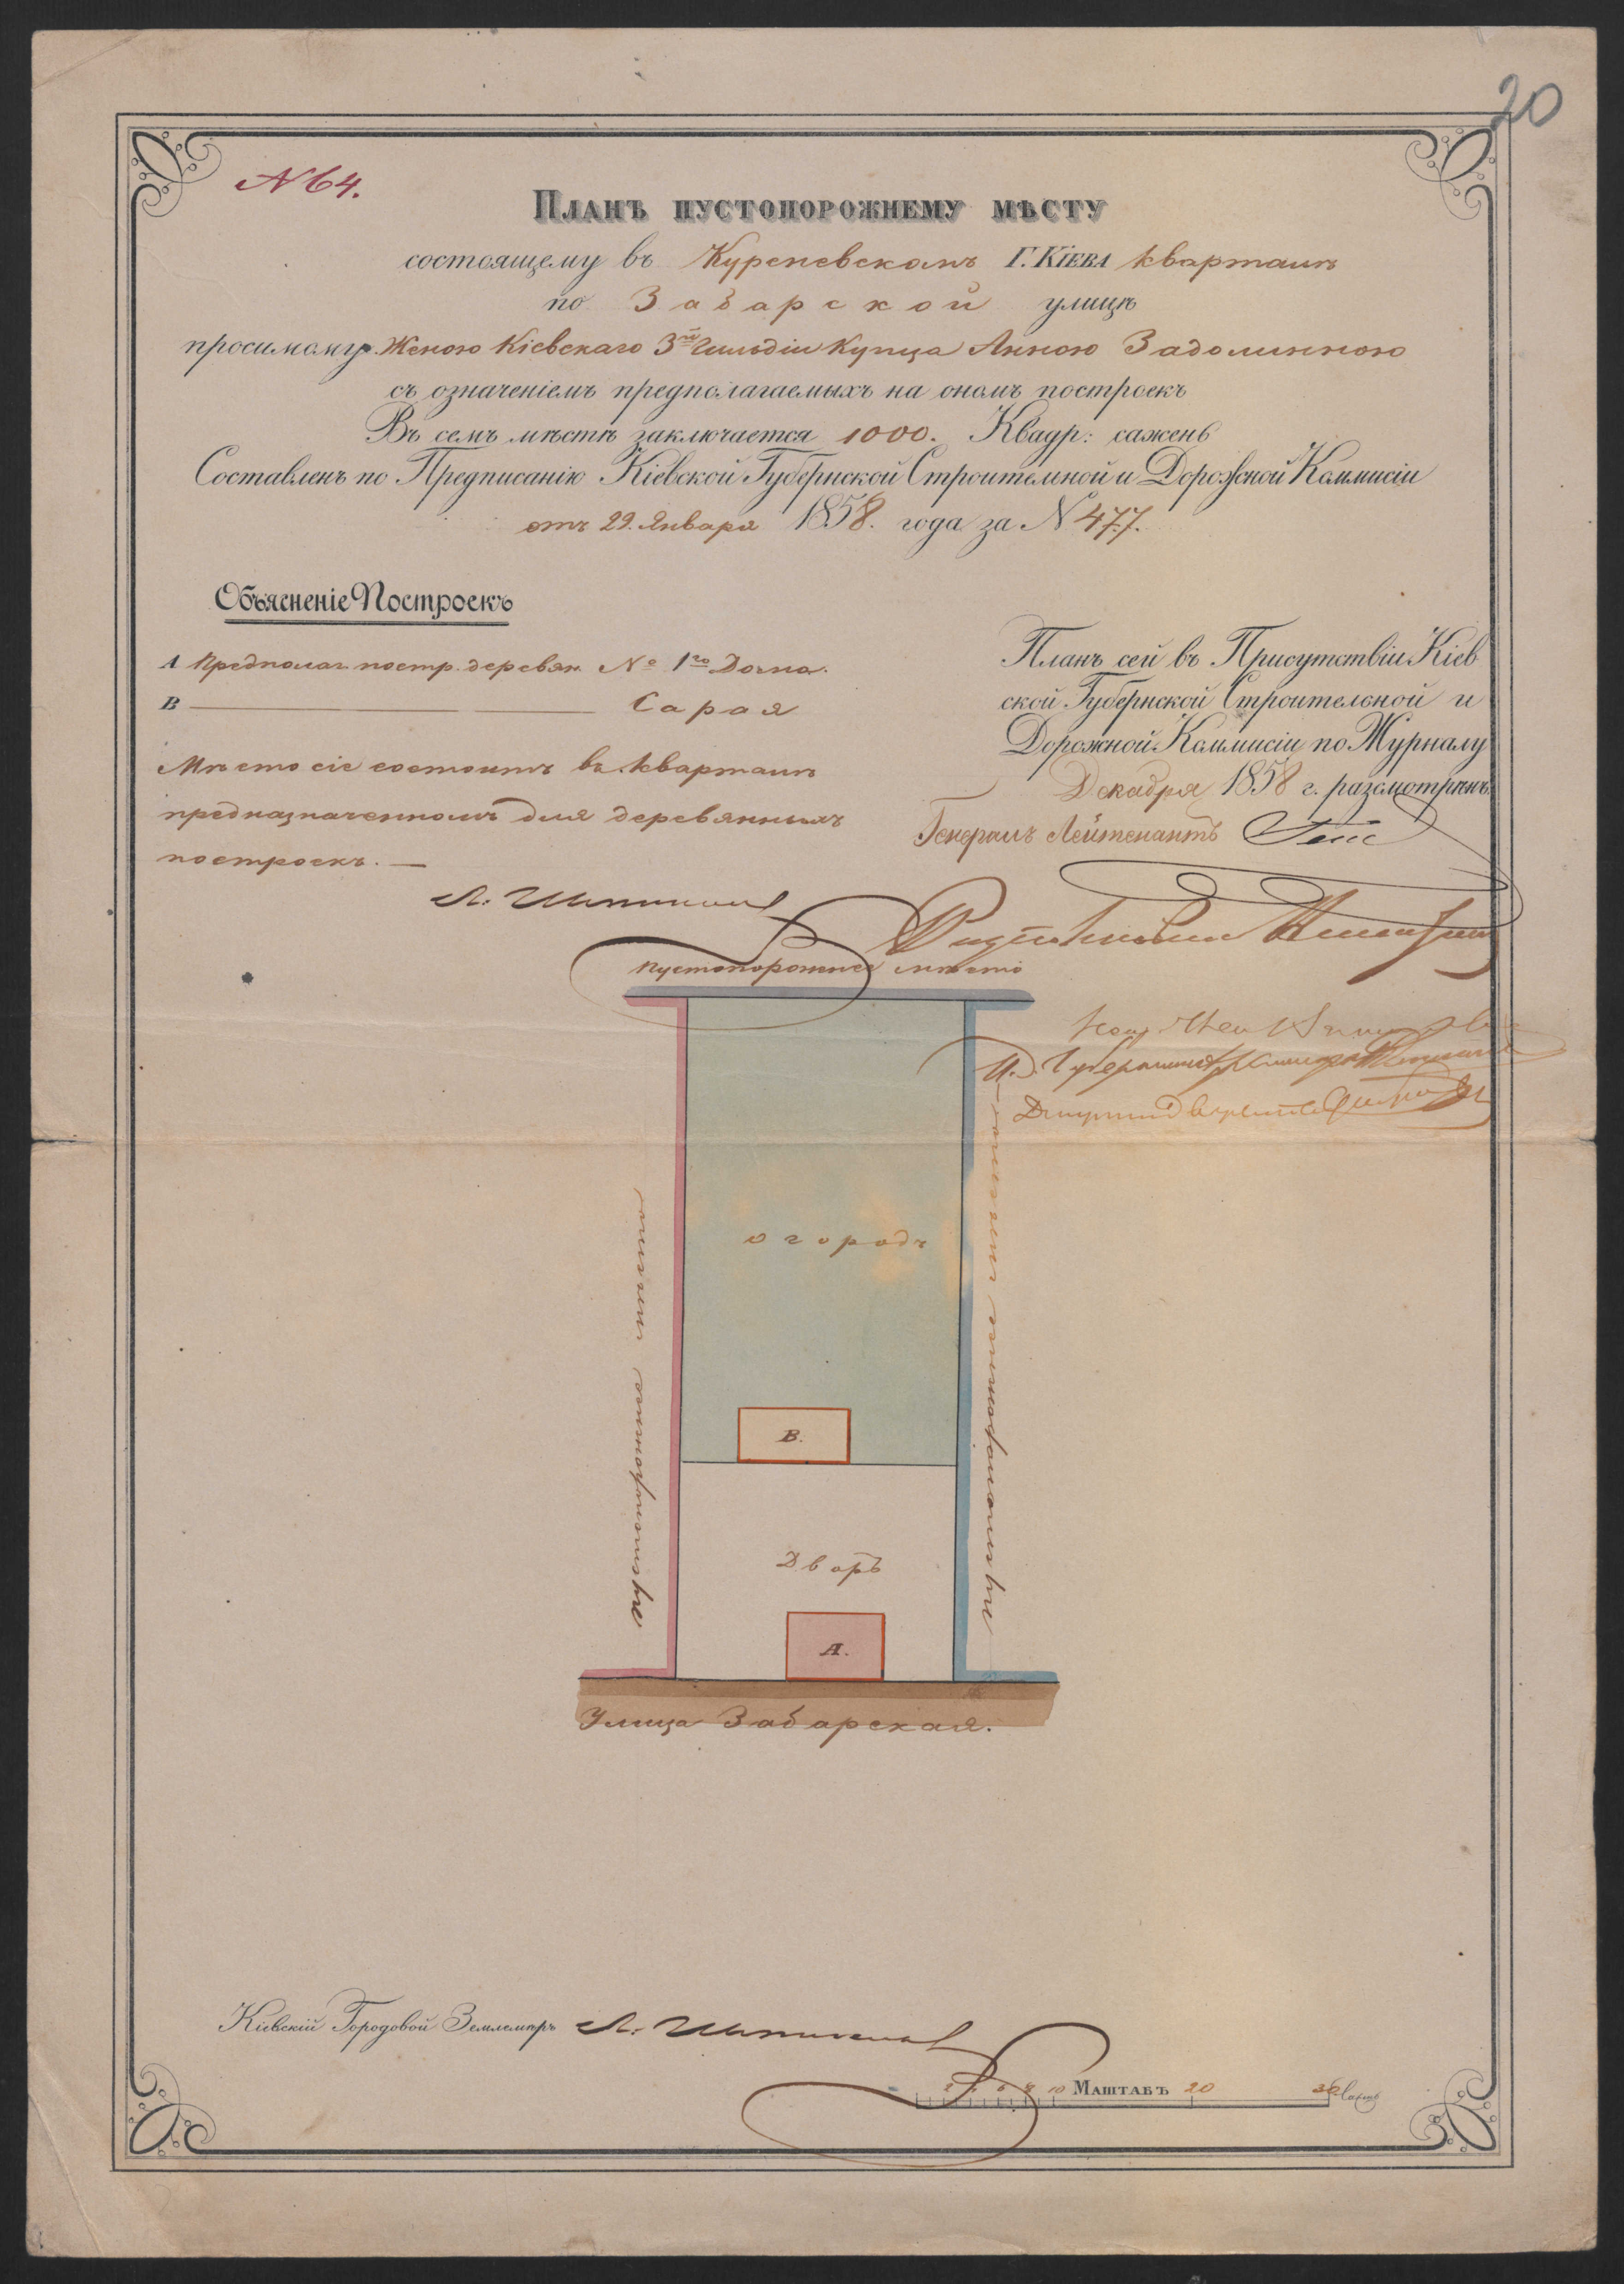 20
N 64.
Планъ пустопорожнему мѣсту
состоящему въ Куреневскомъ Г. Кіева кварталѣ
по Забарской улицѣ
просимому Женою Кіевскаго 3й Гильдіи Купца Анною Задолинною
съ означеніемъ предполагаемыхъ на ономъ построекъ
Въ семъ мѣстѣ заключается 1000. Квадр: сажень
Составленъ по Предписанію Кіевской Губернской Строительной и Дорожной Коммисіи
отъ 29. Января 1858. года за N 477.
Объясненіе Построекъ
А Предполаг. постр. деревян. № 1го Дома.
В Сарая
Мѣсто сіе состоитъ въ кварталѣ
предназначенномъ для деревянныхъ
построекъ.
Планъ сей въ Присутствіи Кіев
ской Губернской Строительной и
Дорожной Коммисіи по Журналу
Декабря 1858 г. разсмотрѣнъ
Генералъ Лейтенантъ
Пустопорожнее мѣсто
огородъ
В.
Дворъ
А.
Улица Забарская.
Кіевскій Городовой Землемѣръ
2 4 6 8 10 Маштабъ 20 30 Саженъ